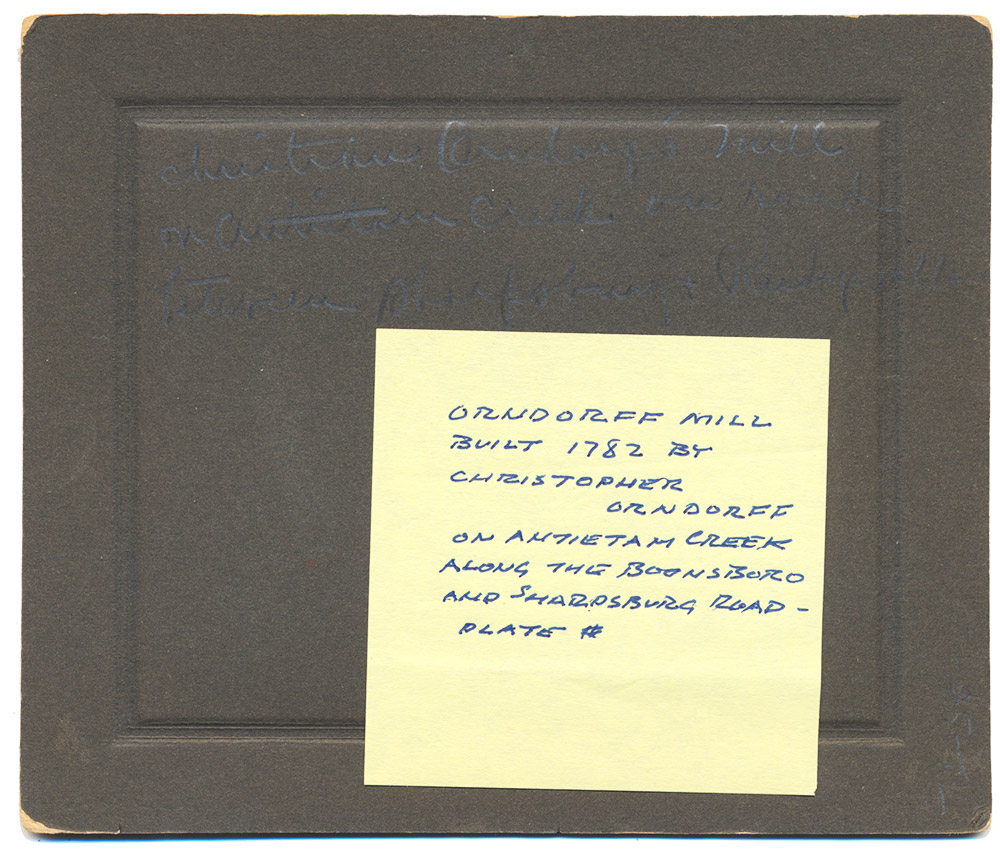 Christian Orndorff's Mill
on Antietam Creek on road
between Sharpsburg &
ORNDORFF MILL
BUILT 1782 BY
CHRISTOPHER
ORNDORFF
ON ANTIETAM CREEK
ALONG THE BOONSBORO
AND SHARPSBURG ROAD -
PLATE #